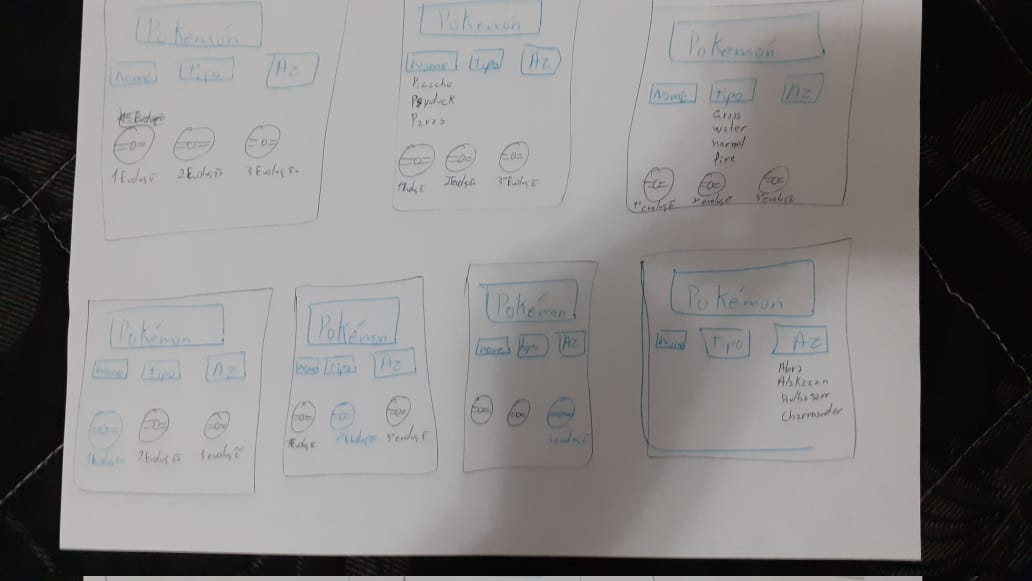 Pokemón
Nome Tipo Az
1 Evolução 2 Evolução 3 Evolução
Pokemón
Nome Tipo Az
Picachu
Psyduck
Paras
2 Evolução 3ª Evolução
Pokemón
Nome Tipo Az
Grass
water
normal
fire
1ª evolução 2ª evolução 3ª evolução
Pokémon
Nome Tipo Az
1 Evolução 2 Evolução 3 evolução
Pokémon
Nome Tipo Az
3ª evolução
Pokémon
Nome Tipo Az
3 evolução
Pokémon
Nome Tipo Az
Abra
Alakazan
Bulbasaur
Charmander